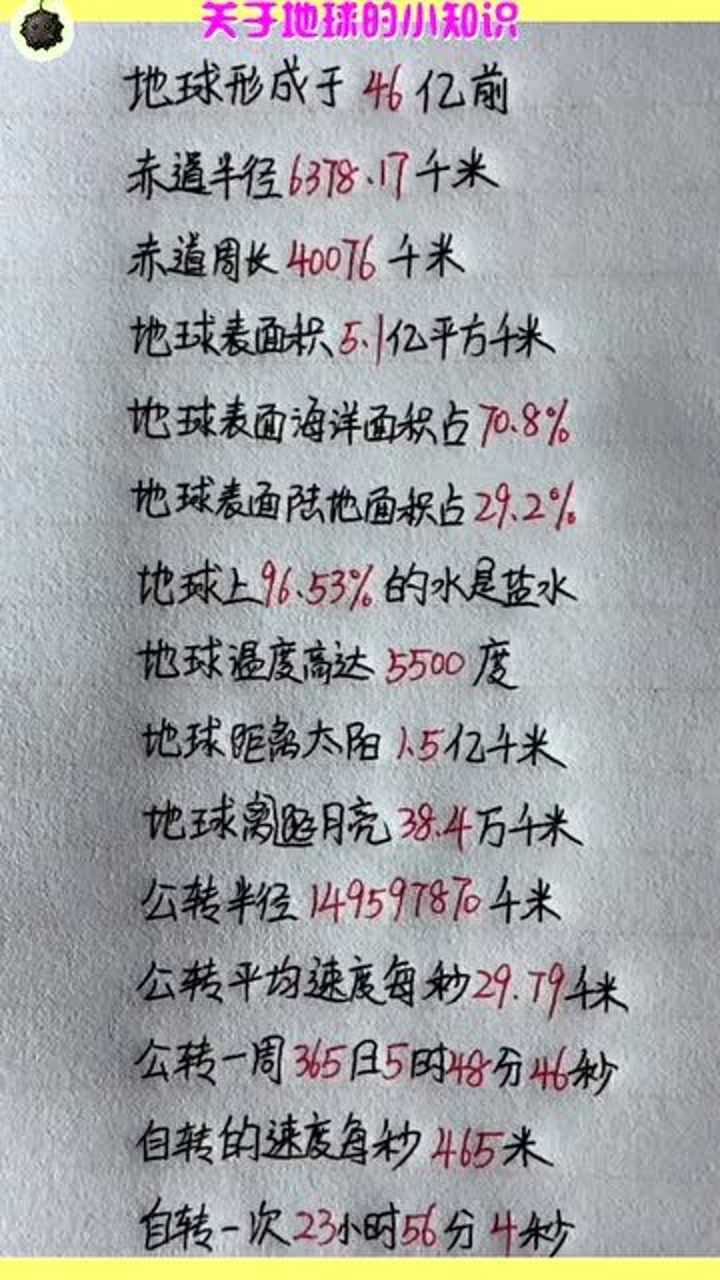 关于地球的小知识
地球形成于46亿前
赤道半径6378.17千米
赤道周长40076千米
地球表面积5.1亿平方千米
地球表面海洋面积占70.8%
地球表面陆地面积占29.2%
地球上96.53%的水是盐水
地球温度高达5500度
地球距离太阳1.5亿千米
地球离距月亮38.4万千米
公转半径149597870千米
公转平均速度每秒29.79千米
公转一周365日5时48分46秒
自转的速度每秒465米
自转一次23小时56分4秒